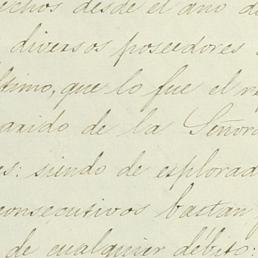 echos desde el año d
diversos poseedores
ltimo, que lo fue el
marido de la Señora
es: siendo de explorad
consecutivos bastan
de cualquier débito: